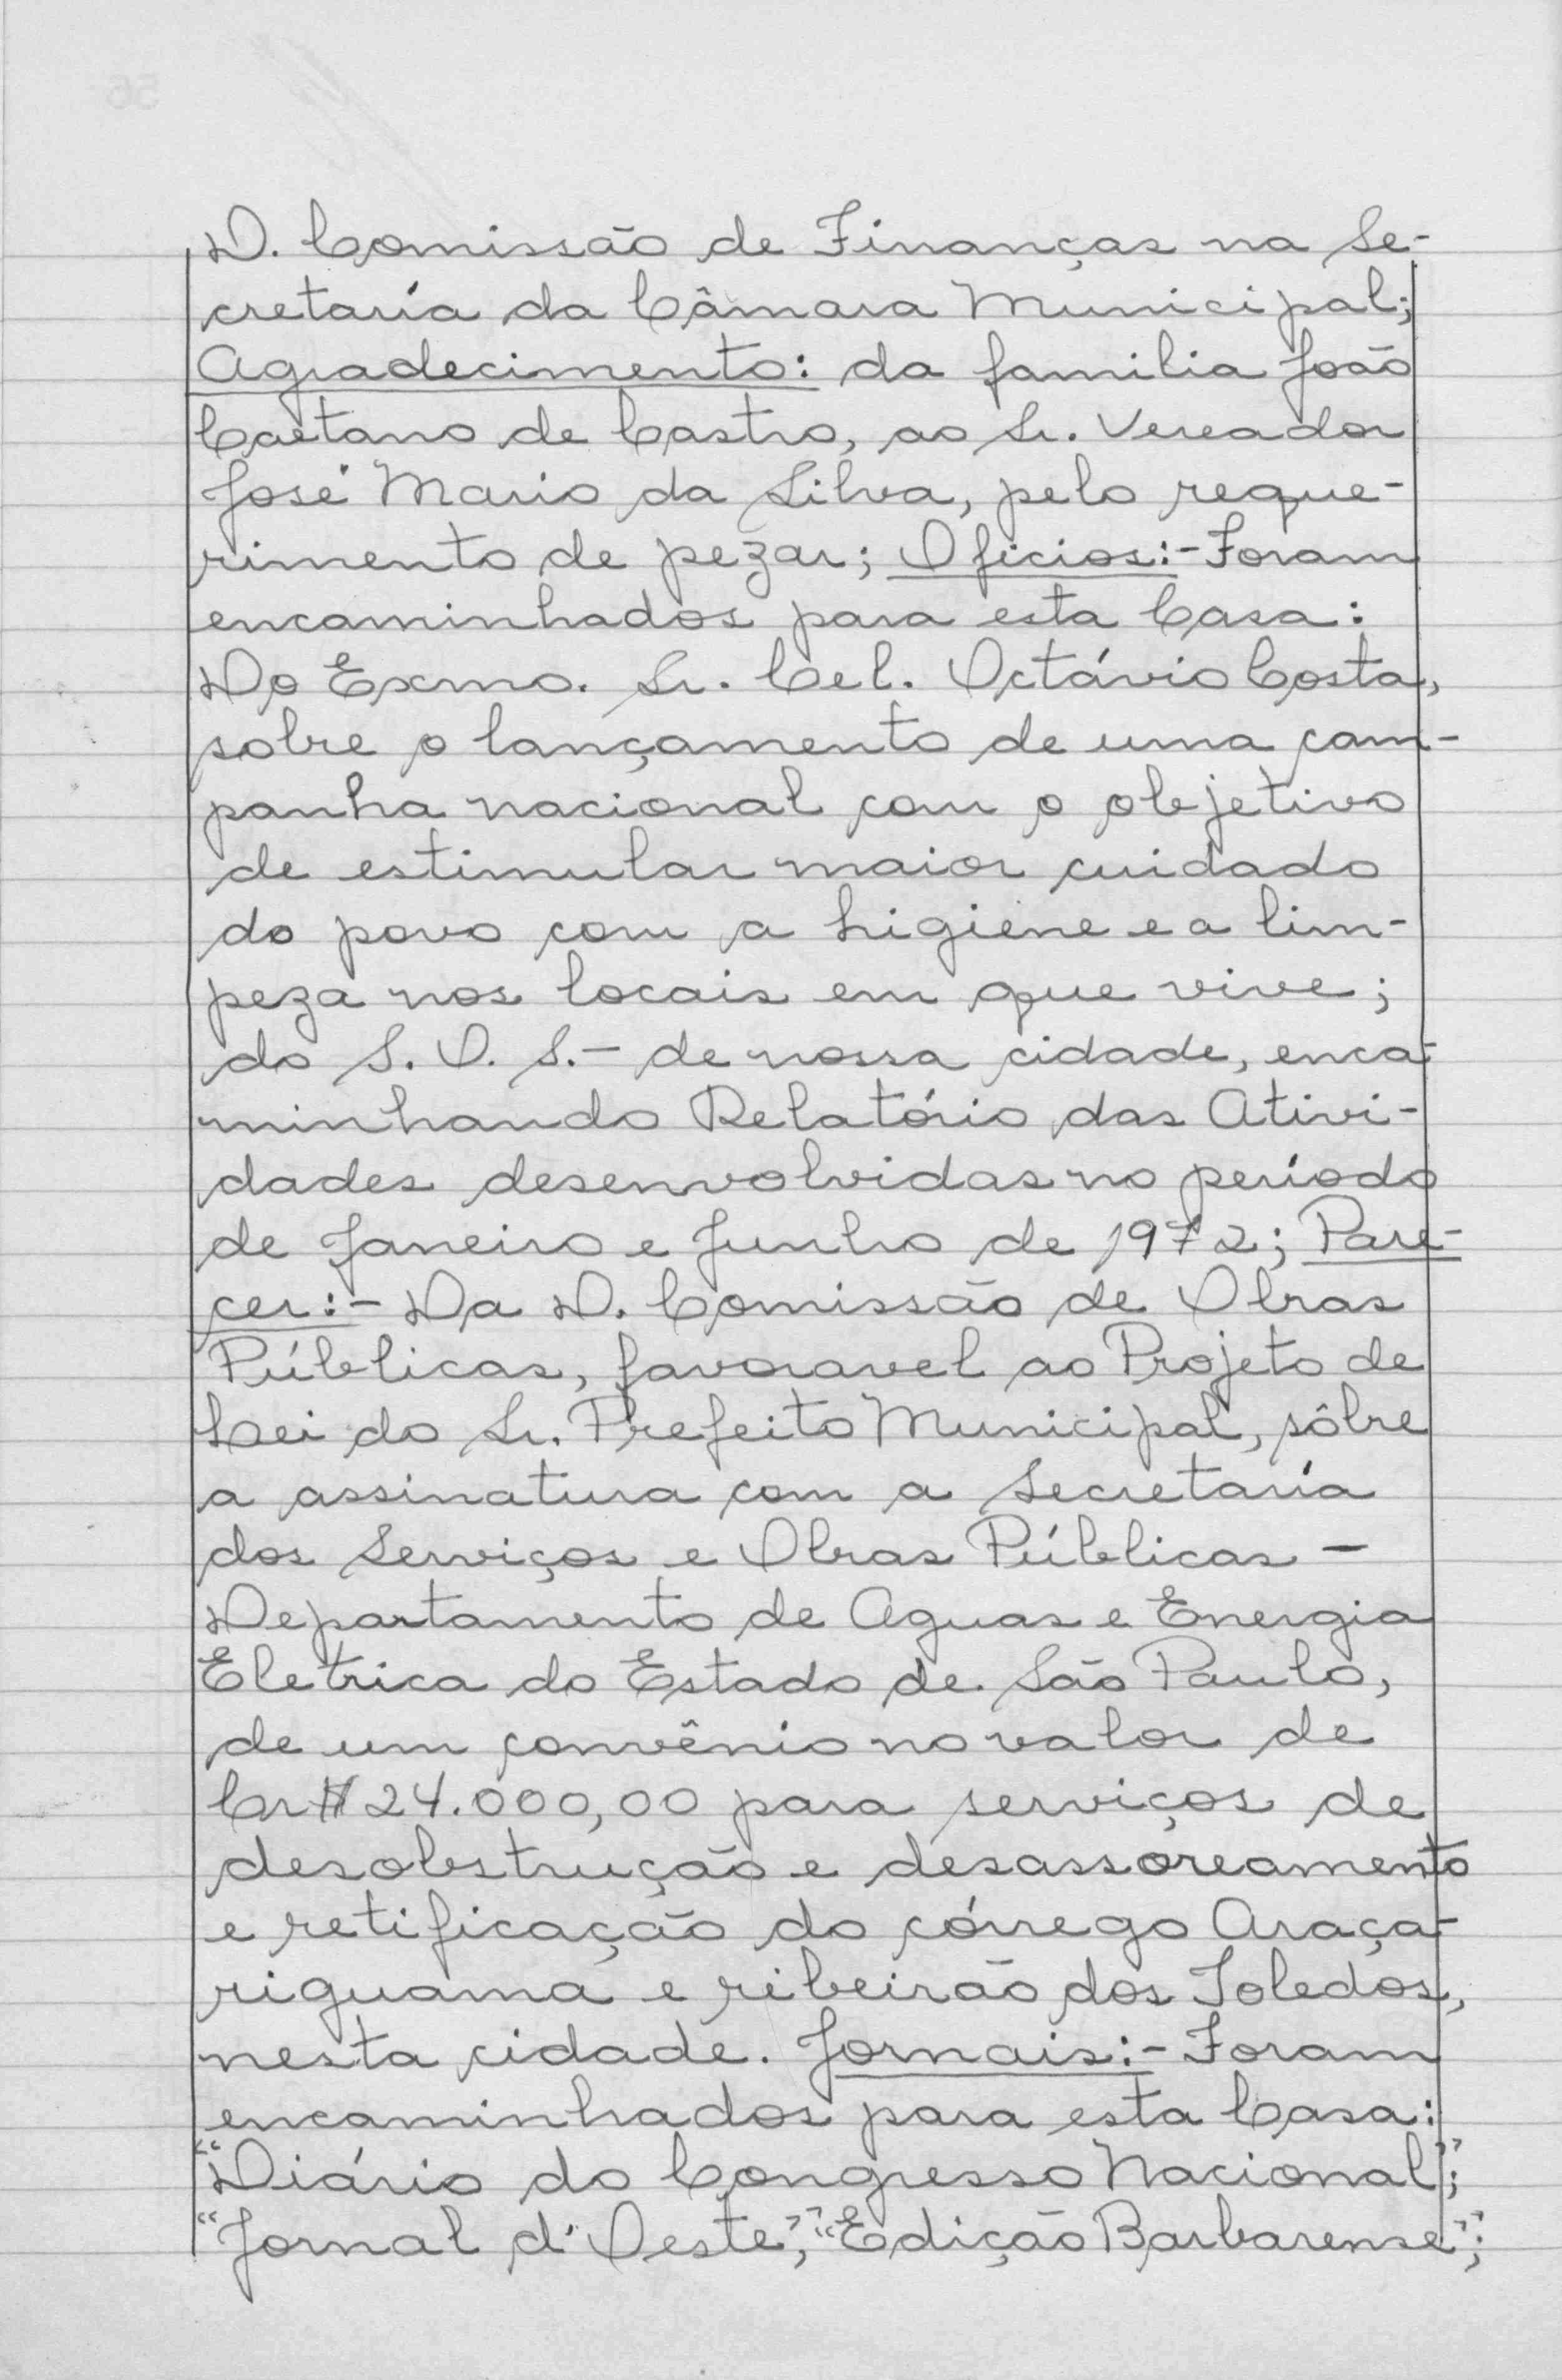 D. Comissão de Finanças na Se-
cretaría da Câmara Municipal;
Agradecimento: da familia João
Caetano de Castro, ao Sr. Vereador
José Mario da Silva, pelo reque-
rimento de pezar; Oficios:- Foram
encaminhados para esta Casa:
Do Exmo. Sr. Cel. Octávio Costa,
sobre o lançamento de uma cam-
panha nacional com o objetivo
de estimular maior cuidado
do povo com a higiene e a lim-
peza nos locais em que vive;
do S. O. S. - de nossa cidade, enca-
minhando Relatório das Ativi-
dades desenvolvidas no período
de Janeiro e Junho de 1972; Pare-
cer:- Da D. Comissão de Obras
Públicas, favoravel ao Projeto de
Lei do Sr. Prefeito Municipal, sôbre
a assinatura com a Secretaría
dos Serviços e Obras Públicas -
Departamento de Aguas e Energia
Eletrica do Estado de São Paulo,
de um convênio no valor de
Cr$ 24.000,00 para serviços de
desobstrução e desassoreamento
e retificação do córrego Araça-
riguama e ribeirão dos Toledos,
nesta cidade. Jornais:- Foram
encaminhados para esta Casa:
"Diário do Congresso Nacional";
"Jornal d'Oeste", "Edição Barbarense";